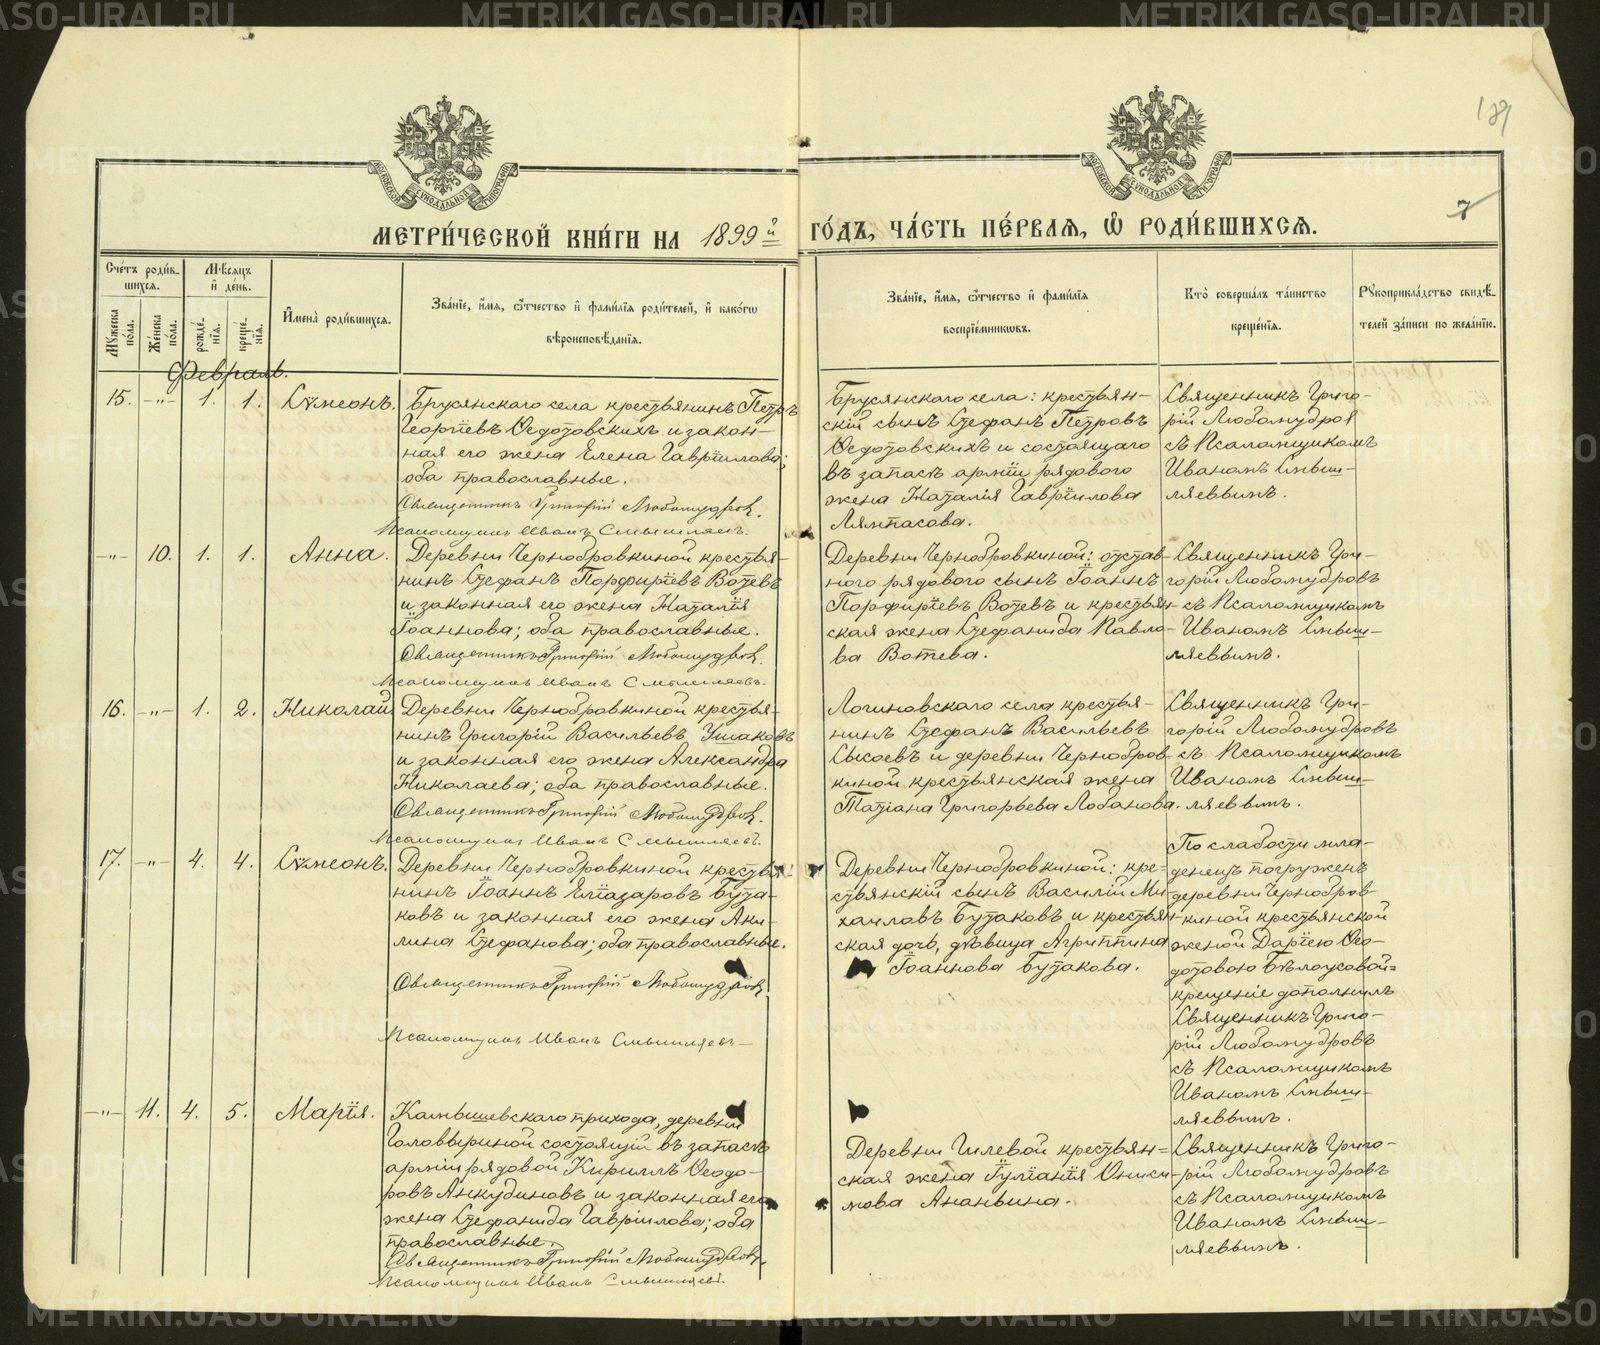 METRIKI.GASO-URAL.RU
189
7
МОСКОВСКОЙ СѴНОДАЛЬНОЙ ТИПОГРАФІИ
МОСКОВСКОЙ СѴНОДАЛЬНОЙ ТИПОГРАФІИ
МЕТРИ́ЧЕСКОЙ КНИ́ГИ НА 1899й ГО́ДЪ, ЧА́СТЬ ПЕ́РВАѦ, Ѿ РОДИ́ВШИХСѦ.
Сче́тъ роди́в-
шихсѧ.
Мꙋ́жеска
по́ла.
Же́нска
по́ла.
Мѣ́сѧцъ
и҆ де́нь.
рожде́-
нїѧ.
креще́-
нїѧ.
И҆мена̀ роди́вшихсѧ.
Зва́нїе, и҆́мѧ, ѻ҆́тчество и҆ фами́лїѧ роди́телей, и҆ како́гѡ
вѣроисповѣ́данїѧ.
Зва́нїе, и҆́мѧ, ѻ҆́тчество и҆ фами́лїѧ
воспрїе́мникѡвъ.
Кто̀ соверша́лъ та́инство
креще́нїѧ.
Рꙋкоприкла́дство свидѣ́-
телей за́писи по жела́нїю.
Февраль.
15. -„- 1. 1. Сѵмеонъ.
Брусянскаго села крестьянинъ Петръ
Георгіевъ Ѳедотовскихъ и закон-
ная его жена Елена Гавріилова;
оба православные.
Священникъ Григорій Любомудров.
Псаломщикъ Иванъ Смышляевъ.
Брусянскаго села: крестьян-
скій сынъ Стефанъ Петровъ
Ѳедотовскихъ и состоящаго
въ запасѣ арміи рядового
жена Наталія Гавріилова
Лямпасова.
Священникъ Григо-
рій Любомудров
съ Псаломщикомъ
Иваномъ Смыш-
ляевымъ.
-„- 10. 1. 1. Анна.
Деревни Чернобровкиной крестья-
нинъ Стефанъ Порфиріевъ Вотевъ
и законная его жена Наталія
Іоаннова; оба православные.
Священникъ Григорій Любомудров.
Псаломщикъ Иванъ Смышляевъ.
Деревни Чернобровкиной: отстав-
ного рядового сынъ Іоаннъ
Порфиріевъ Вотевъ и крестьян-
ская жена Стефанида Павло-
ва Вотева.
Священникъ Гри-
горій Любомудровъ
съ Псаломщикомъ
Иваномъ Смыш-
ляевымъ.
16. -„- 1. 2. Николай
Деревни Чернобровкиной крестья-
нинъ Григорій Васильевъ Ушаковъ
и законная его жена Александра
Николаева; оба православные.
Священникъ Григорій Любомудров.
Псаломщикъ Иванъ Смышляевъ.
Логиновскаго села крестья-
нинъ Стефанъ Васильевъ
Сысоевъ и деревни Чернобров-
киной крестьянская жена
Татіана Григорьева Лобанова.
Священникъ Гри-
горій Любомудровъ
съ Псаломщикомъ
Иваномъ Смыш-
ляевымъ.
17. -„- 4. 4. Сѵмеонъ.
Деревни Чернобровкиной крестья-
нинъ Іоаннъ Еліазаровъ Бута-
ковъ и законная его жена Аки-
лина Стефанова; оба православные.
Священникъ Григорій Любомудров.
Псаломщикъ Иванъ Смышляевъ
Деревни Чернобровкиной: кре-
стьянскій сынъ Василій Ми-
хаиловъ Бутаковъ и крестьян-
ская дочь, дѣвица Агриппина
Іоаннова Бутакова.
По слабости мла-
денецъ погруженъ
деревни Чернобров-
киной крестьянской
женой Даріею Ѳео-
дотовою Бѣлоусовой=
крещеніе дополнилъ
Священникъ Григо-
рій Любомудровъ
съ Псаломщикомъ
Иваномъ Смыш-
ляевымъ.
-„- 11. 4. 5. Марія.
Камышевскаго прихода, деревни
Головыриной состоящій въ запасѣ
арміи рядовой Кириллъ Ѳеодо-
ровъ Анкудиновъ и законная его
жена Стефанида Гавріилова; оба
православные.
Священникъ Григорій Любомудров.
Псаломщикъ Иванъ Смышляевъ.
Деревни Гилевой крестьян=
ская жена Іуліанія Ониси-
мова Ананьина.
Священникъ Григо-
рій Любомудровъ
съ Псаломщикомъ
Иваномъ Смыш-
ляевымъ.
METRIKI.GASO-URAL.RU